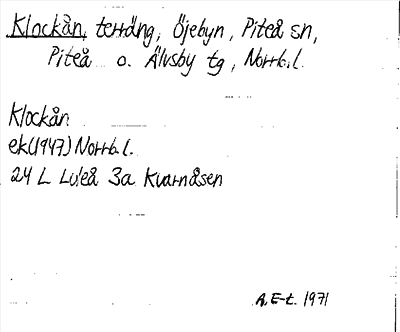 Klockån, terräng, Öjebyn, Piteå sn,
Piteå o. Älvsby tg, Norrb.l.
Klockån
ek(1947) Norrb.l.
24 L Luleå 3a Kvarnåsen
A.E-t. 1971